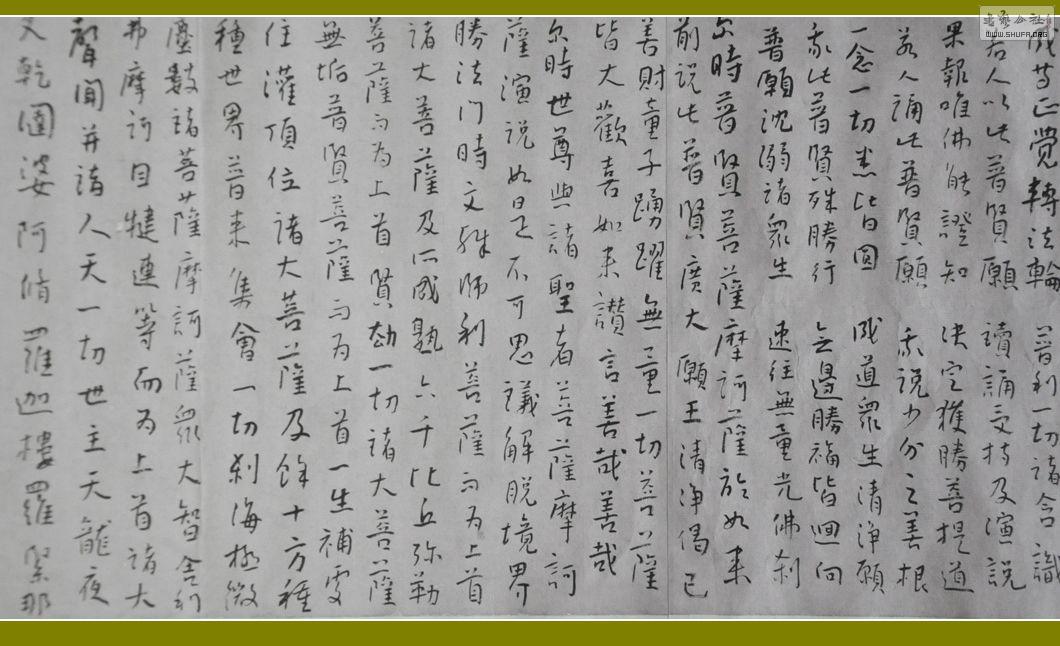 成等正覺轉法輪 普利一切諸含識
若人以此普賢願 讀誦受持及演說
果報唯佛能證知 決定獲勝菩提道
若人誦此普賢願 我說少分之善根
一念一切悉皆圓 成道眾生清淨願
我此普賢殊勝行 無邊勝福皆迴向
普願沈溺諸眾生 速往無量光佛剎
尔時普賢菩薩摩訶薩於如來
前說此普賢廣大願王清淨偈已
善財童子踴躍無量一切菩薩
皆大歡喜如來讚言善哉善哉
尔時世尊與諸聖者菩薩摩訶
薩演說如是不可思議解脫境界
勝法門時文殊師利菩薩而為上首
諸大菩薩及所成熟六千比丘弥勒
菩薩而為上首賢劫一切諸大菩薩
無垢普賢菩薩而為上首一生補處
住灌頂位諸大菩薩及餘十方種
種世界普來集會一切剎海極微
塵數諸菩薩摩訶薩眾大智舍利
弗摩訶目犍連等而為上首諸大
聲聞并諸人天一切世主天龍夜
叉乾闥婆阿脩羅迦樓羅緊那
書法公社
www.SHUFA.ORG